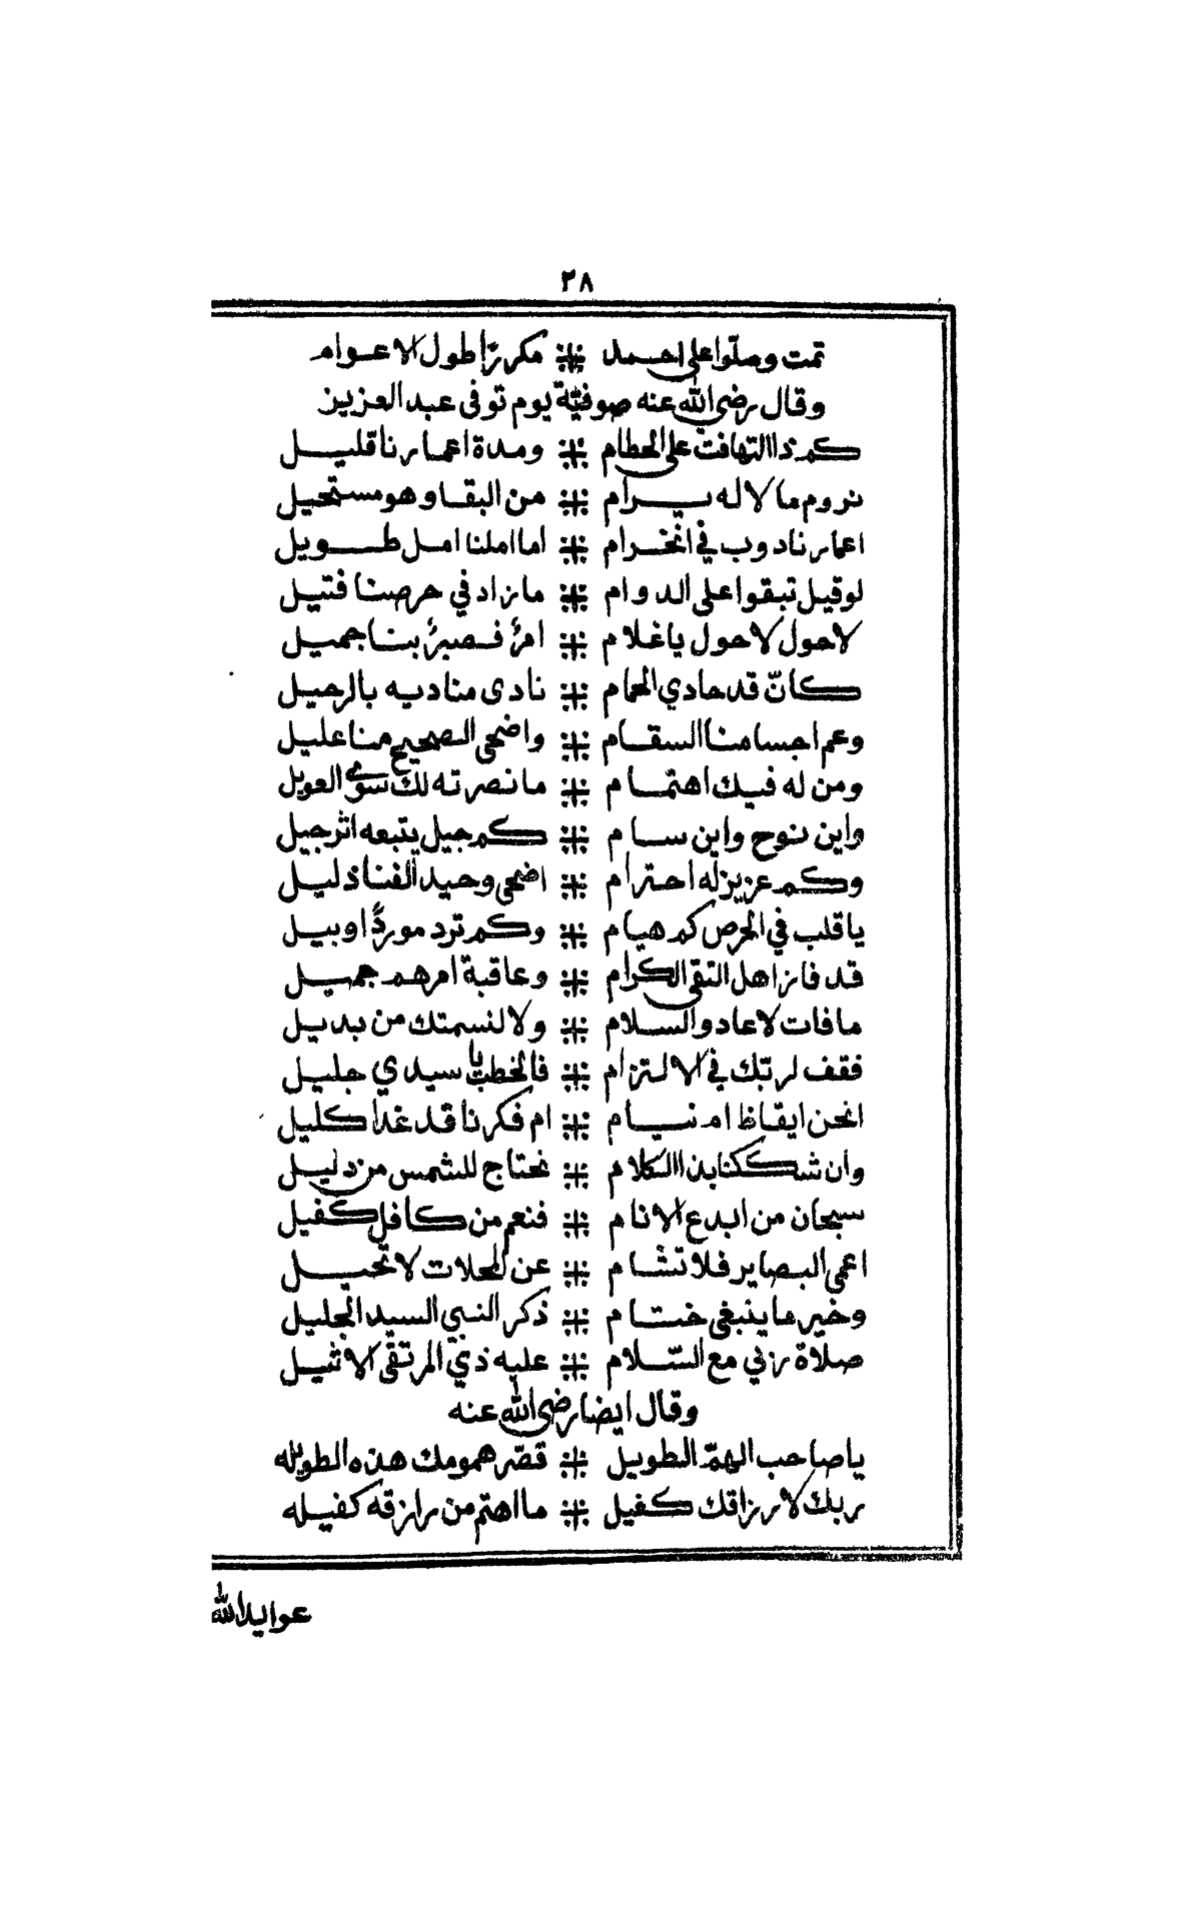 ٢٨
تمت وصلّوا على احمد ⁜ مكررًا طول الاعوام
وقال رضى الله عنه صوفيّة يوم توفى عبد العزيز
كم ذا التهافت على الحطام ⁜ ومدة اعمارنا قليل
نروم ما لا له يرام ⁜ من البقا وهو مستحيل
اعمارنا دوب في انخرام ⁜ اما املنا امل طويل
لو قيل تبقوا على الدوام ⁜ ما زاد في حرصنا فتيل
لا حول لا حول يا غلام ⁜ امرًا فصبرًا بنا جميل
كانّ قد حادي الحمام ⁜ نادى مناديه بالرحيل
وعم اجسامنا السقام ⁜ واضحى الصحيح منا عليل
ومن له فيك اهتمام ⁜ ما نصرته لك سوى العويل
واين نوح واين سام ⁜ كم جيل يتبعه اثر جيل
وكم عزيز له احترام ⁜ اضحى وحيد الفنا ذليل
يا قلب في الحرص كم هيام ⁜ وكم ترد موردًا وبيل
قد فاز اهل التقى الكرام ⁜ وعاقبة امرهم جميل
ما فات لا عاد والسلام ⁜ ولا لنسمتك من بديل
فقف لربك في الالتزام ⁜ فالخطب يا سيدي جليل
انحن ايقاظ ام نيام ⁜ ام فكرنا قد غدا كليل
وان شككنا بذا الكلام ⁜ نحتاج للشمس من دليل
سبحان من ابدع الانام ⁜ فنعم من كافل كفيل
اعمى البصاير فلا تشام ⁜ عن المحلات لا تحيل
وخير ما ينبغى ختام ⁜ ذكر النبي السيد الجليل
صلاة ربي مع السّلام ⁜ عليه ذي المرتقى الاثيل
وقال ايضا رضى الله عنه
يا صاحب الهمّ الطويل ⁜ قصّر همومك هذه الطويله
ربك لارزاقك كفيل ⁜ ما اهتم من رازقه كفيله
عوايد الله